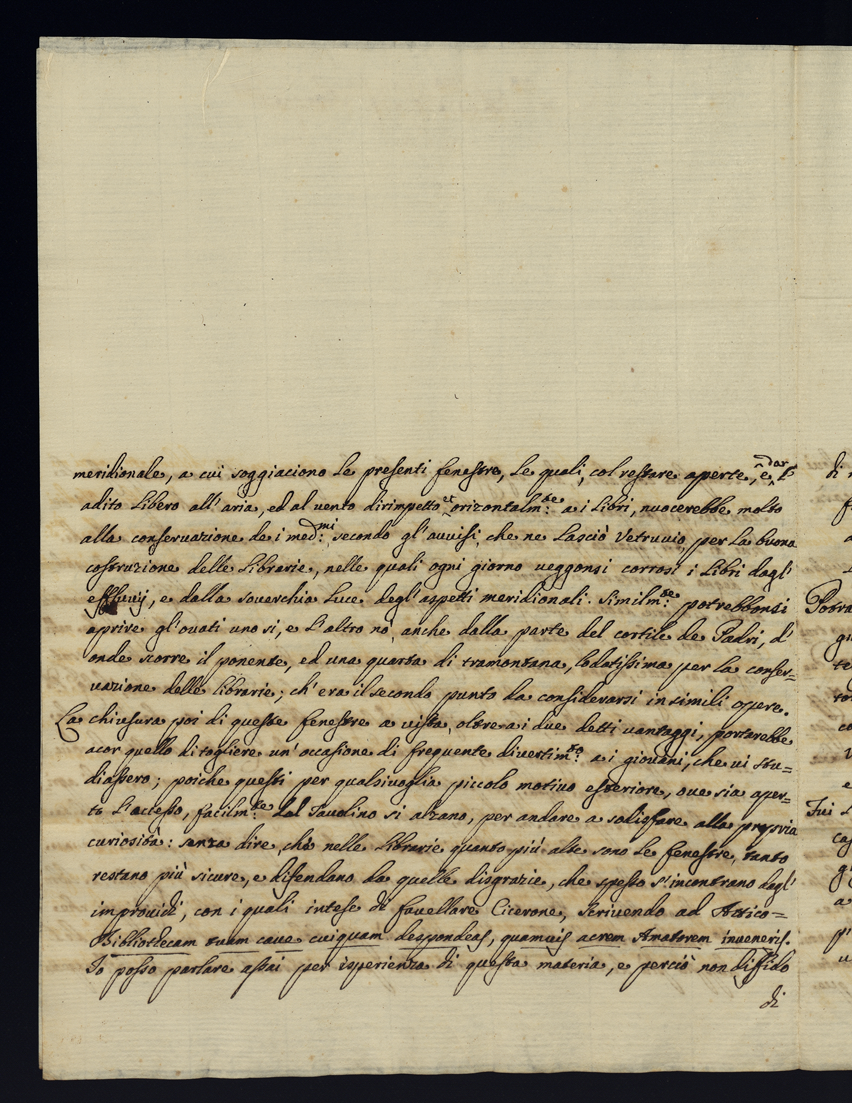 meridionale, a cui soggiaciono le presenti fenestre, le quali, col restare aperte, e dar l'
adito libero all'aria, ed al vento dirimpetto et orizontalm:te a i libri, nuocerebbe molto
alla conservazione de i med:mi, secondo gl'avvisi, che ne lasciò Vetruvio, per la buona
costruzione delle librarie, nelle quali ogni giorno veggonsi corrosi i libri dagl'
effluvij, e dalla soverchia luce degl'aspetti meridionali. Similm:te potrebbonsi
aprire gl'ovati uno si, e l'altro nò, anche dalla parte del cortile de Padri, d'
onde scorre il ponente, ed una quarta di tramontana, lodatissima per la conser=
vazione delle librarie; ch'era il secondo punto da considerarsi in simili opere.
La chiusura poi di queste fenestre a vista, oltre a i due detti vantaggi, portarebbe
acor quello di togliere un'occasione di frequente divertim:to a i giovani, che vi stu=
diassero; poiche questi per qualsivoglia piccolo motivo esteriore, ove sia aper=
to l'accesso, facilm:te dal Tavolino si alzano, per andare a sodisfare alla propria
curiosità: senza dire, che nelle librarie quanto più alte sono le fenestre, tanto
restano più sicure, e difendano da quelle disgrazie, che spesso s'incontrano dagl'
improvidi, con i quali intese di favellare Cicerone, scrivendo ad Attico=
Bibliothecam tuam cave cuiquam despondeas, quamvis acrem Amatorem inveneris.
Io posso parlare assai per isperienza di questa materia, e perciò non diffido
di